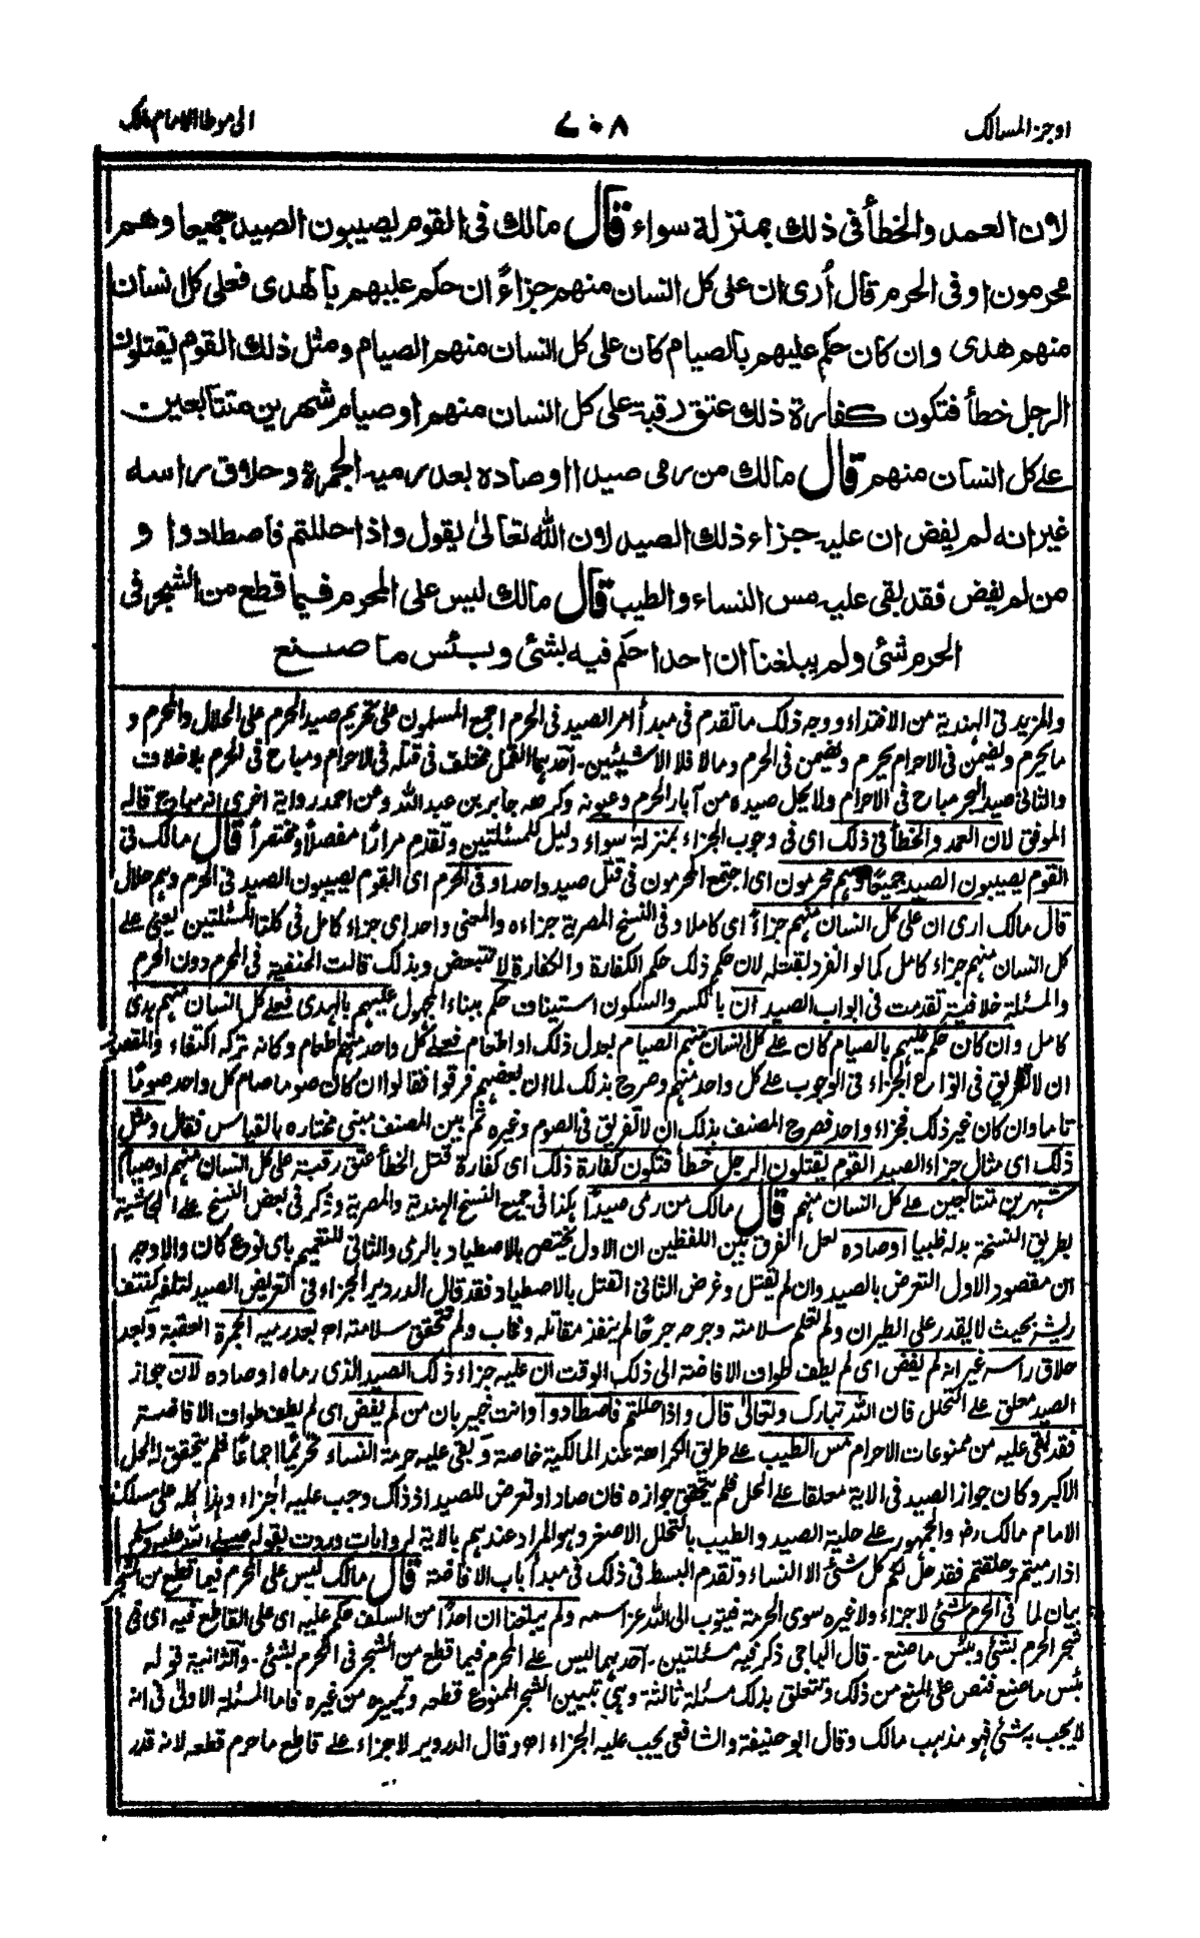 اوجز المسالك
٧٠٨
الى موطا الامام مالك
لان العمد والخطأ فى ذلك بمنزلة سواء قال مالك فى القوم يصيبون الصيد جميعا وهم
محرمون او فى الحرم قال أرى ان على كل انسان منهم جزاءً ان حكم عليهم بالهدى فعلى كل انسان
منهم هدى وان كان حكم عليهم بالصيام كان على كل انسان منهم الصيام ومثل ذلك القوم يقتلون
الرجل خطأ فتكون كفارة ذلك عتق رقبة على كل انسان منهم او صيام شهرين متتابعين
على كل انسان منهم قال مالك من رمى صيدا او صاده بعد رميه الجمرة وحلاق راسه
غير انه لم يفض ان عليه جزاء ذلك الصيد لان الله تعالىٰ يقول واذا حللتم فاصطادوا و
من لم يفض فقد بقى عليه مس النساء والطيب قال مالك ليس على المحرم فيما قطع من الشجر فى
الحرم شئ ولم يبلغنا ان احدا حكم فيه بشئ وبئس ما صنع
والمزيد فى الهندية من الافتداء ووجه ذلك ما تقدم فى مبدأ امر الصيد فى الحرم اجمع المسلمون على تحريم صيد الحرم على الحلال والمحرم و
ما يحرم ويضمن فى الاحرام يحرم ويضمن فى الحرم وما لا فلا الا شيئين. احدهما القمل مختلف فى قتله فى الاحرام ومباح فى الحرم بلا خلاف
والثانى صيد البحر مباح فى الاحرام ولا يحل صيده من آبار الحرم وعيونه وكرهه جابر بن عبد الله وعن احمد رواية اخرى انه مباح قاله
الموفق لان العمد والخطأ فى ذلك اى فى وجوب الجزاء بمنزلة سواء دليل للمسئلتين وتقدم مرارًا مفصلًا ومختصرًا قال مالك فى
القوم يصيبون الصيد جميعًا وهم محرمون اى اجتمع المحرمون فى قتل صيد واحد او فى الحرم اى القوم يصيبون الصيد فى الحرم وهم حلال
قال مالك ارى ان على كل انسان منهم جزاءً اى كاملا وفى النسخ المصرية جزاءه والمعنى واحد اى جزاء كامل فى كلتا المسئلتين يعنى على
كل انسان منهم جزاء كامل كما لو انفرد بقتله لان حكم ذلك حكم الكفارة والكفارة لا تتبعض وبذلك قالت الحنفية فى المحرم دون الحرم
والمسئلة خلافية تقدمت فى ابواب الصيد ان بالكسر والسكون استيناف حكم ببناء المجهول عليهم بالهدى فعلى كل انسان منهم هدى
كامل وان كان حكم عليهم بالصيام كان على كل انسان منهم الصيام بعدل ذلك او اطعام فعلى كل واحد منهم اطعام وكانه تركه اكتفاء والمقصود
ان لا تفريق فى انواع الجزاء فى الوجوب على كل واحد منهم وصرح بذلك لما ان بعضهم فرقوا فقالوا ان كان صوما صام كل واحد صومًا
تاما وان كان غير ذلك فجزاء واحد فصرح المصنف بذلك ان لا تفريق فى الصوم وغيره ثم بين المصنف مبنى مختاره بالقياس فقال ومثل
ذلك اى مثال جزاء الصيد القوم يقتلون الرجل خطأ فتكون كفارة ذلك اى كفارة قتل الخطأ عتق رقبة على كل انسان منهم او صيام
شهرين متتابعين على كل انسان منهم قال مالك من رمى صيدًا هكذا فى جميع النسخ الهندية والمصرية وذكر فى بعض النسخ على الحاشية
بطريق النسخة بدله ظبيا او صاده لعل الفرق بين اللفظين ان الاول يختص بالاصطياد بالرمى والثانى للتعميم باى نوع كان والاوجه
ان مقصود الاول التعرض بالصيد وان لم يقتل وغرض الثانى القتل بالاصطياد فقد قال الدردير الجزاء فى التعريض الصيد لتلفه كنتف
ريشه بحيث لا يقدر على الطيران ولم تعلم سلامته وجرحه جرحًا لم ينفذ مقاتله وغاب ولم تتحقق سلامته اه بعد رميه الجمرة العقبة وبعد
حلاق راسه غير انه لم يفض اى لم يطف طواف الافاضة الى ذلك الوقت ان عليه جزاء ذلك الصيد الذى رماه او صاده لان جواز
الصيد معلق على التحلل فان الله تبارك وتعالىٰ قال واذا حللتم فاصطادوا وانت خبير بان من لم يفض اى لم يطف طواف الافاضة
فقد بقى عليه من ممنوعات الاحرام مس الطيب على طريق الكراهة عند المالكية خاصة وبقى عليه حرمة النساء تحريمًا اجماعًا فلم يتحقق له الحل
الاكبر وكان جواز الصيد فى الاية معلقا على الحل فلم يتحقق جوازه فان صاد او تعرض للصيد اذ ذاك وجب عليه الجزاء وهذا كله على مسلك
الامام مالك رض والجمهور على حلية الصيد والطيب بالتحلل الاصغر وهو المراد عندهم بالاية لروايات وردت بقوله صلى الله عليه وسلم
اذا رميتم وحلقتم فقد حل لكم كل شئ الا النساء وتقدم البسط فى ذلك فى مبدأ باب الافاضة قال مالك ليس على المحرم فيما قطع من الشجر
بيان لما فى الحرم شئ لا جزاء ولا غيره سوى الحرمة فيتوب الى الله عز اسمه ولم يبلغنا ان احدًا من السلف حكم عليه اى على القاطع فيه اى فى
شجر الحرم بشئ وبئس ما صنع. قال الباجى ذكر فيه مسئلتين. احدهما ليس على المحرم فيما قطع من الشجر فى الحرم بشئ. والثانية قوله
بئس ما صنع فنص على المنع من ذلك وتتعلق بذلك مسئلة ثالثة وهى تبيين الشجر الممنوع قطعه وتمييزه من غيره فاما المسئلة الاولىٰ فى انه
لا يجب به شئ فهو مذهب مالك وقال ابو حنيفة والشافعى يجب عليه الجزاء اه وقال الدردير لا جزاء على قاطع ما حرم قطعه لانه قدر